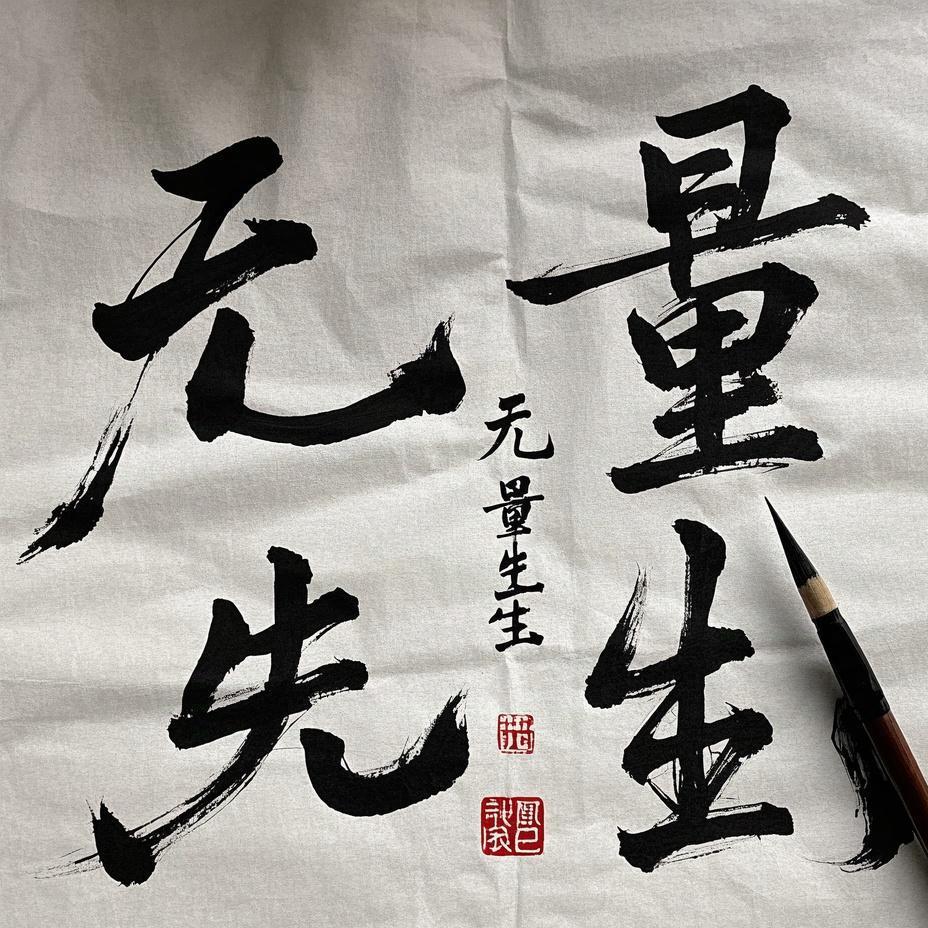 无量
先生
无量生生